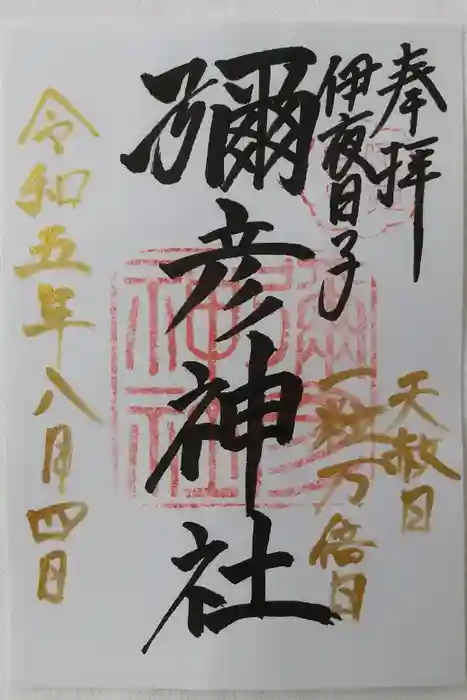 奉拝
伊夜日子
彌彦神社
天赦日
一粒万倍日
令和五年八月四日
彌彦神社